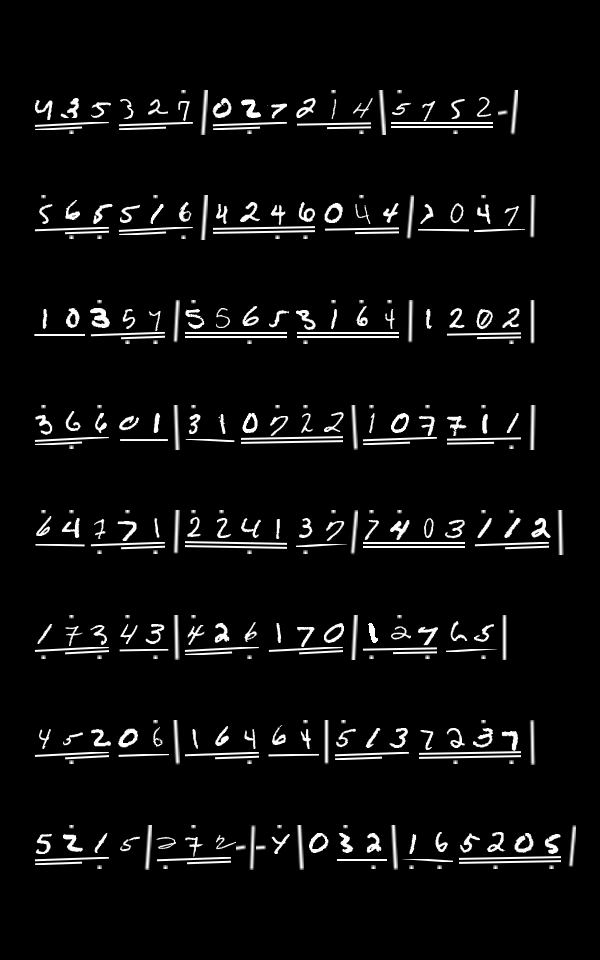 435327|027214|5752-|
565516|4246044|2047
10357|55653164|1202|
36601|310722|107711|
64771|2241372|7403112|
17343|426170|12765
45206|16464|5137237|
5215|272-|-4|032|165205|